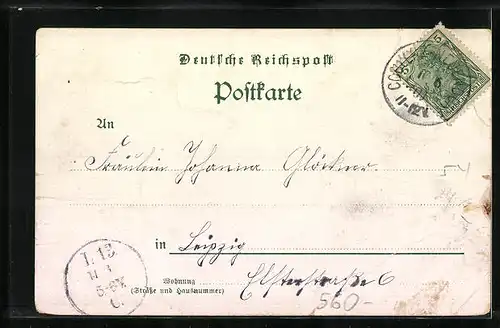 Deutsche Reichspost
Postkarte
An
Fräulein Johanna Glöckner.
in Leipzig
Wohnung
(Straße und Hausnummer)
Elsterstraße 6
560-